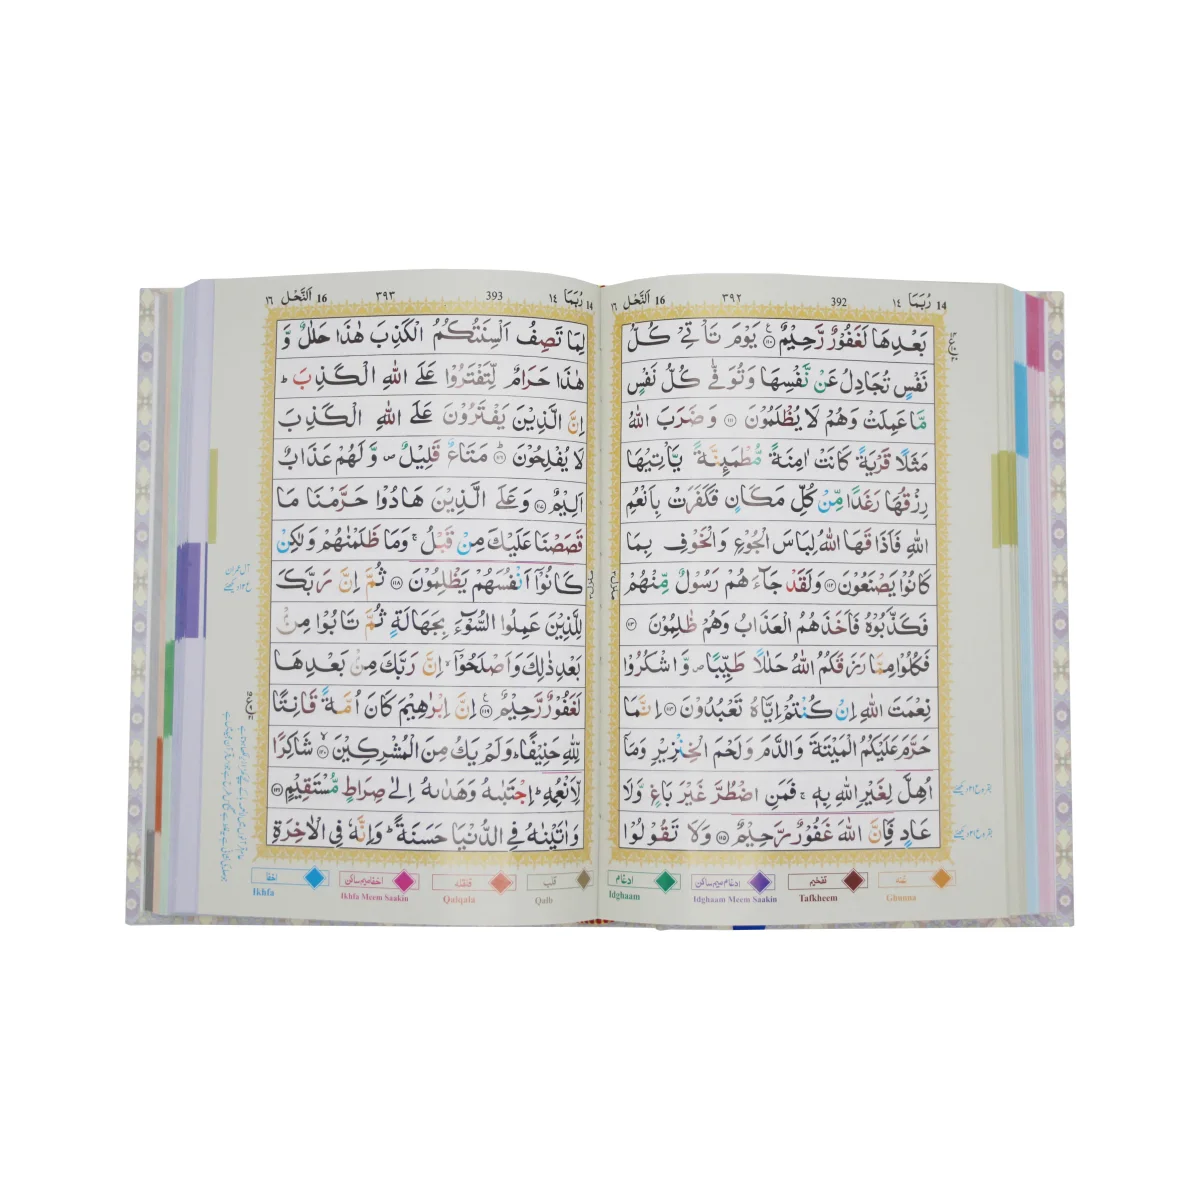 14 رُبَمَا ١٤ 392 ٣٩٢ 16 اَلنَّحْل ١٦
بَعْدِهَا لَغَفُوْرٌ رَّحِيْمٌ ۝١١٠ يَوْمَ تَاْتِيْ كُلُّ
نَفْسٍ تُجَادِلُ عَنْ نَّفْسِهَا وَتُوَفّٰى كُلُّ نَفْسٍ
مَّا عَمِلَتْ وَهُمْ لَا يُظْلَمُوْنَ ۝١١١ وَضَرَبَ اللّٰهُ
مَثَلًا قَرْيَةً كَانَتْ اٰمِنَةً مُّطْمَىِٕنَّةً يَّاْتِيْهَا
رِزْقُهَا رَغَدًا مِّنْ كُلِّ مَكَانٍ فَكَفَرَتْ بِاَنْعُمِ
اللّٰهِ فَاَذَاقَهَا اللّٰهُ لِبَاسَ الْجُوْعِ وَالْخَوْفِ بِمَا
كَانُوْا يَصْنَعُوْنَ ۝١١٢ وَلَقَدْ جَآءَهُمْ رَسُوْلٌ مِّنْهُمْ
فَكَذَّبُوْهُ فَاَخَذَهُمُ الْعَذَابُ وَهُمْ ظٰلِمُوْنَ ۝١١٣
فَكُلُوْا مِمَّا رَزَقَكُمُ اللّٰهُ حَلٰلًا طَيِّبًا ۪ وَّاشْكُرُوْا
نِعْمَتَ اللّٰهِ اِنْ كُنْتُمْ اِيَّاهُ تَعْبُدُوْنَ ۝١١٤ اِنَّمَا
حَرَّمَ عَلَيْكُمُ الْمَيْتَةَ وَالدَّمَ وَلَحْمَ الْخِنْزِيْرِ وَمَآ
اُهِلَّ لِغَيْرِ اللّٰهِ بِهٖ ۚ فَمَنِ اضْطُرَّ غَيْرَ بَاغٍ وَّلَا
عَادٍ فَاِنَّ اللّٰهَ غَفُوْرٌ رَّحِيْمٌ ۝١١٥ وَلَا تَقُوْلُوْا
غنہ Ghunna
تفخیم Tafkheem
ادغام میم ساکن Idghaam Meem Saakin
ادغام Idghaam
14 رُبَمَا ١٤ 393 ٣٩٣ 16 اَلنَّحْل ١٦
لِمَا تَصِفُ اَلْسِنَتُكُمُ الْكَذِبَ هٰذَا حَلٰلٌ وَّ
هٰذَا حَرَامٌ لِّتَفْتَرُوْا عَلَى اللّٰهِ الْكَذِبَ ؕ
اِنَّ الَّذِيْنَ يَفْتَرُوْنَ عَلَى اللّٰهِ الْكَذِبَ
لَا يُفْلِحُوْنَ ۝١١٦ مَتَاعٌ قَلِيْلٌ ۪ وَّلَهُمْ عَذَابٌ
اَلِيْمٌ ۝١١٧ وَعَلَى الَّذِيْنَ هَادُوْا حَرَّمْنَا مَا
قَصَصْنَا عَلَيْكَ مِنْ قَبْلُ ۚ وَمَا ظَلَمْنٰهُمْ وَلٰكِنْ
كَانُوْٓا اَنْفُسَهُمْ يَظْلِمُوْنَ ۝١١٨ ثُمَّ اِنَّ رَبَّكَ
لِلَّذِيْنَ عَمِلُوا السُّوْٓءَ بِجَهَالَةٍ ثُمَّ تَابُوْا مِنْۢ
بَعْدِ ذٰلِكَ وَاَصْلَحُوْٓا ۙ اِنَّ رَبَّكَ مِنْۢ بَعْدِهَا
لَغَفُوْرٌ رَّحِيْمٌ ۝١١٩ اِنَّ اِبْرٰهِيْمَ كَانَ اُمَّةً قَانِتًا
لِّلّٰهِ حَنِيْفًا ؕ وَلَمْ يَكُ مِنَ الْمُشْرِكِيْنَ ۝١٢٠ شَاكِرًا
لِّاَنْعُمِهٖ ؕ اِجْتَبٰىهُ وَهَدٰىهُ اِلٰى صِرَاطٍ مُّسْتَقِيْمٍ ۝١٢١
وَاٰتَيْنٰهُ فِي الدُّنْيَا حَسَنَةً ؕ وَاِنَّهٗ فِي الْاٰخِرَةِ
قلب Qalb
قلقلہ Qalqala
اخفا میم ساکن Ikhfa Meem Saakin
اخفا Ikhfa